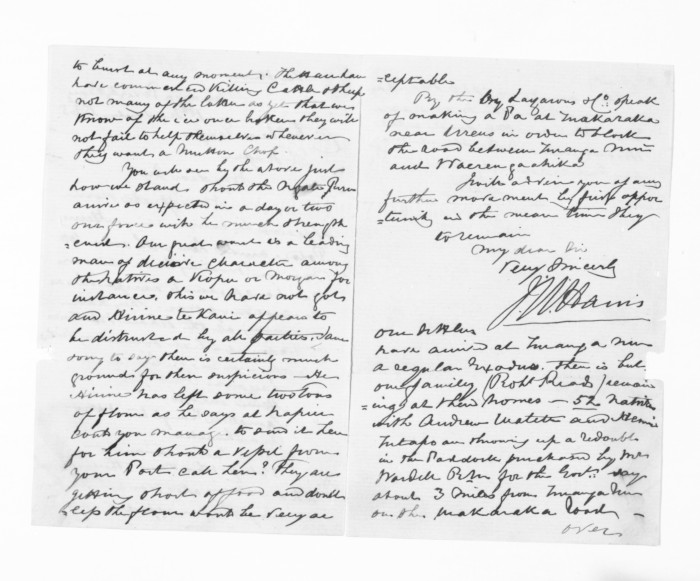 to burst at any moment. The Hauhau
have commenced killing Cattle & Sheep
not many of the latter as yet that we
know of the ice once broken they will
not fail to help themselves whenever
they want a Mutton Chop.
You will see by the above just
how we stand should the Ngati Porou
arrive as expected in a day or two
our force will be much strength
=ened. Our great want is a leading
man of decisive Character among
the Natives a Ropu or Morgan for
instance. this we have not got
and Hirini te Kani appears to
be distrusted by all parties, I am
sorry to say there is certainly much
grounds for their suspicions — He
Hirini has left some two tons
of flour as he says at Napier
could you manage to send it here
for him should a vessel from
your Port call here? They are
getting short of food and doubt
less the flour would be very ac
=ceptable
By the Bye Lazarous & Co. speak
of making a Pa at Makaraka
near Wrens in order to block
the road between Turanga Nui
and Waerengaahika
I will advise you of any
further movement by first oppor
=tunity in the mean time I beg
to remain
My dear Sir
Very Sincerely
J W Harris
Our Settlers
have arrived at Turanga Nui
a regular Exodus. There is but
one family (Robt Read) remain
ing at their homes — 52 natives
with Andrew Matete and Henare
Turapa are throwing up a redoubt
in the Paddock purchased by Mrs
Wardell R.M for the Govt. say
about 3 miles from Turanga Nui
on the Makaraka road —
over